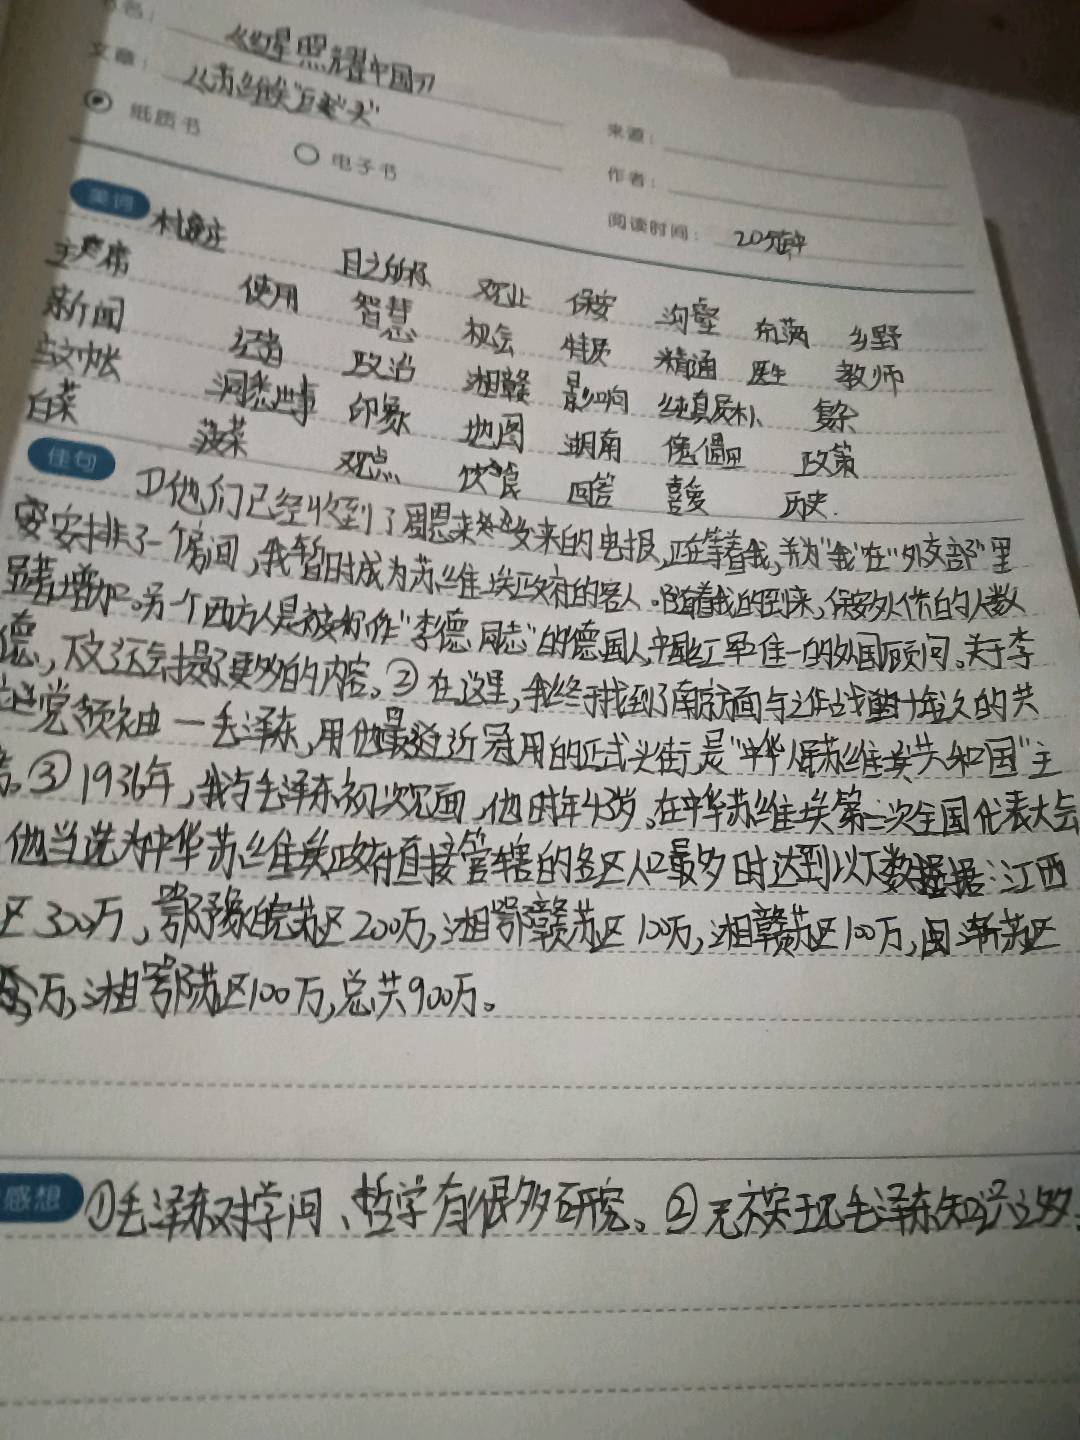 书名：《红星照耀中国》
来源：
文章：《苏维埃"巨头"》
作者：
纸质书 电子书
阅读时间：20分钟
美词 村庄 目之所及 观止 保安 沟壑 布满 乡野
主席 使用 智慧 机会 特质 精通 医生 教师
新闻 经常 政治 湘赣 影响 纯真质朴 复杂
洞悉世事 印象 地图 湖南 傀儡 政策
白菜 菠菜 观点 饮食 回答 喜爱 历史.
佳句 ①他们已经收到了周恩来发来的电报,正在等着我,并为"我"在"外交部"里
安排了一个房间,我暂时成为苏维埃政府的客人。随着我的到来,保安外侨的人数
显著增加。另一个西方人是被称作"李德同志"的德国人,中国红军唯一的外国顾问。关于李
德,下文还会提及更多的内容。②在这里,我终于找到了南京方面与之作战十年之久的共
产党领袖—毛泽东,用他最近冠用的正式头衔,是"中华人民苏维埃共和国"主
席。③1936年,我与毛泽东初次见面,他时年43岁。在中华苏维埃第二次全国代表大会
他当选为中华苏维埃政府直接管辖的各区人口最多时达到以下数据:江西
区300万,鄂豫皖苏区200万,湘鄂赣苏区100万,湘赣苏区100万,闽浙苏区
万,湘鄂苏区100万,总共900万。
感想 ①毛泽东对学问、哲学有很多研究。②无不表现毛泽东知识之多